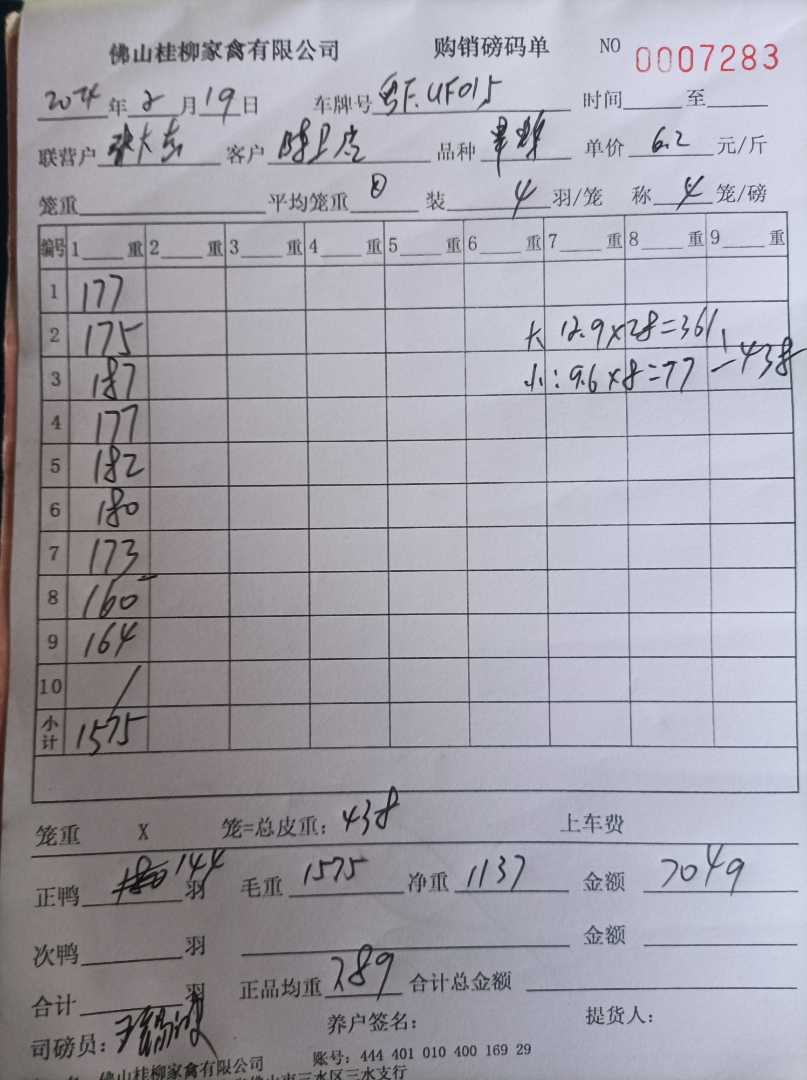 佛山桂柳家禽有限公司 购销磅码单 NO 0007283
2024年2月19日 车牌号 粤F.UF015 时间 至
联营户 张大 客户 品种 单价 6.2 元/斤
笼重 平均笼重 装 4 羽/笼 称 4 笼/磅
编号 1 重 2 重 3 重 4 重 5 重 6 重 7 重 8 重 9 重
1 177
2 175 大 12.9×28=361
3 187 小:9.6×8=77 =438
4 177
5 182
6 180
7 173
8 160
9 164
10 /
小计 1575
笼重 X 笼=总皮重: 438 上车费
正鸭 144 羽 毛重 1575 净重 1137 金额 7049
次鸭 羽 金额
合计 羽 正品均重 789 合计总金额
司磅员: 养户签名: 提货人:
佛山桂柳家禽有限公司 账号: 444 401 010 400 169 29
佛山市三水区三水支行